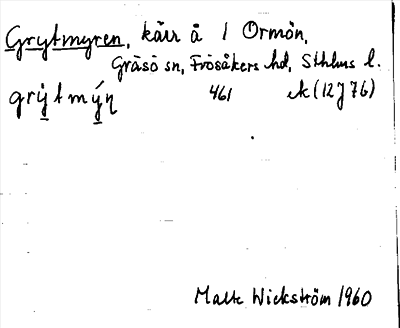 Grytmyren, kärr å 1 Ormön,
Gräsö sn, Frösåkers hd, Sthlms l.
grỳtmýn 461 ek (12J7b)
Malte Wickström 1960